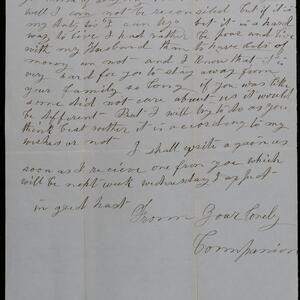 well I can not be reconsiled but if it is
my duty to I can try but it is a hard
way to live I had rather be poor and live
with my Husband than to have lots of
money or not and I know that it is
very hard for you to stay away from
your family so long if you was like
some did not care about us it would
be different But I will try to do as you
think best wether it is according to my
wishes or not
I shall write again as
soon as I recieve one from you which
will be next week wednesday I expect
in great hast
From Your Lonely
Companion